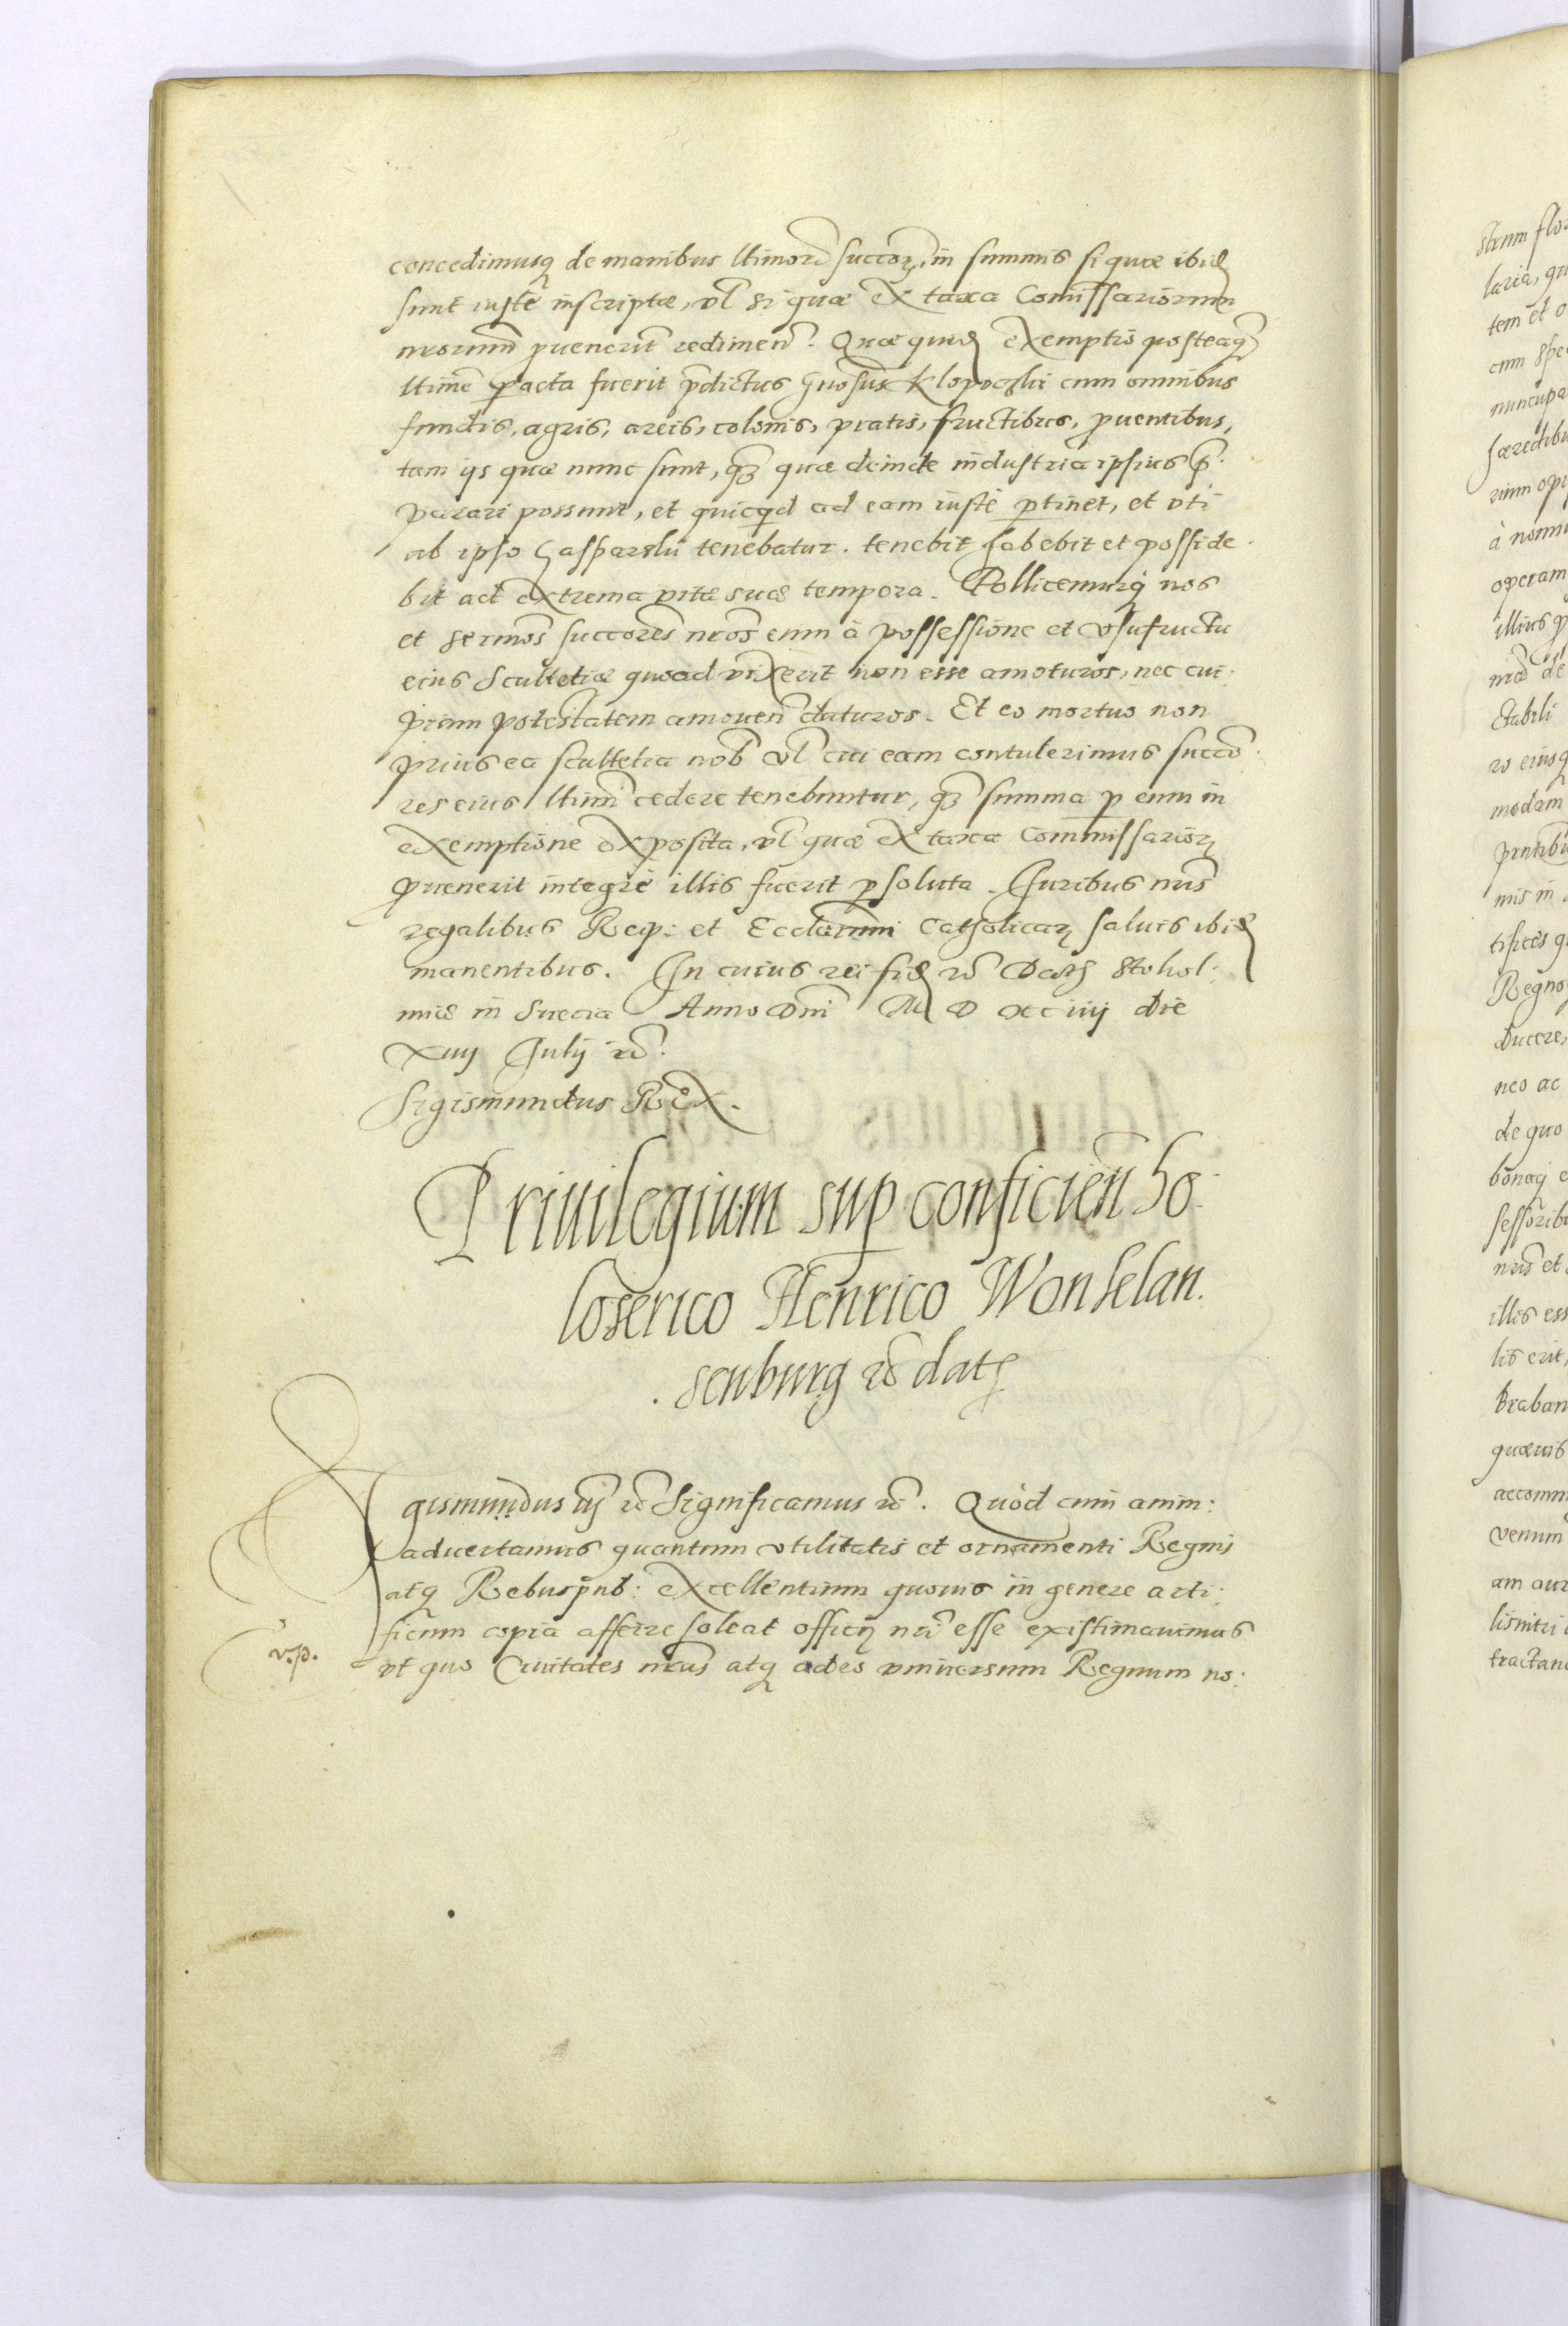 concedimusq de manibus ltimorũ succorũ, in summis si quæ ibid
sunt iustè inscriptæ, vl si quæ ex taxa Comissariorum
nrorum puenerit redimen. Quæ quid exemptio posteaq
ltime pacta fuerit pdictus Gnosus Klopoczki cum omnibus
fundis, agris, areis, colonis, pratis, fructibus, puentibus,
tam ijs quæ nunc sunt, q̃ quæ deinde industria ipsius p̃:
parari possunt, et quicqd ad eam iustè ptinet, et vti
ab ipso Gasparski tenebatur. tenebit habebit et posside:
bit ad extrema vitæ suæ tempora. Pollicemurq nos
et sermos succores nros eum à possessione et vsufructu
eius Scultetiæ quoad vixerit non esse amoturos, nec cui:
piam potestatem amouen daturos. Et eo mortuo non
prius ea scultetia nob vl cui eam contulerimus succo:
res eius ltimi cedere tenebuntur, q̃ summa p eum in
exemptione exposita, vl quæ ex taxa Commissarior
puenerit integrè illis fuerit psoluta. Juribus nris
regalibus Reip: et Ecclarum Catholicar saluis ibid
manentibus. In cuius rei fid rc Dat Stokol:
miæ in Suecia Anno Dni M D xc iiij die
xiiij Julij rc.
Sigismundus Rex.
Priuilegium sup conficien ho:
loserico Henrico Wonhelan.
senburg rc dat
Sigismundus iij rc Significamus rc. Quòd cum anim:
aduertamus quantum vtilitatis et ornamenti Regnis
atq Rebuspub: excellentium quouis in genere arti:
ficum copia afferre soleat officij nri esse existimauimus
vt quo Ciuitates nras atq adeo vniuersum Regnum no:
v.p.